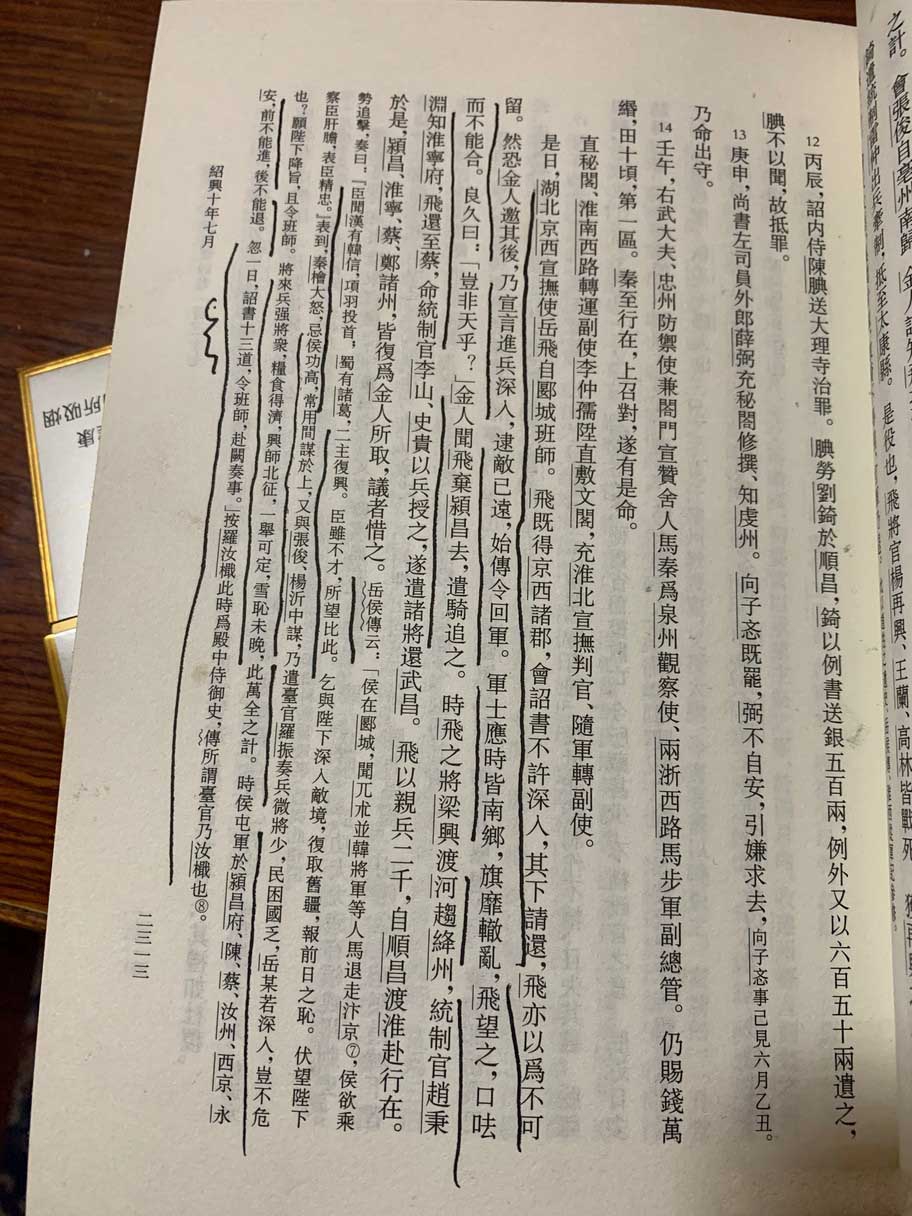 之計。會張俊自亳州南歸,金人
抵至太康縣。是役也,飛將官楊再興、王蘭、高林皆戰死
12 丙辰,詔内侍陳腆送大理寺治罪。腆勞劉錡於順昌,錡以例書送銀五百兩,例外又以六百五十兩遺之,
腆不以聞,故抵罪。
13 庚申,尚書左司員外郎薛弼充秘閣修撰、知虔州。向子忞既罷,弼不自安,引嫌求去,向子忞事已見六月乙丑。
乃命出守。
14 壬午,右武大夫、忠州防禦使兼閤門宣贊舍人馬秦爲泉州觀察使、兩浙西路馬步軍副總管。仍賜錢萬
緡,田十頃,第一區。秦至行在,上召對,遂有是命。
直秘閣、淮南西路轉運副使李仲孺陞直敷文閣,充淮北宣撫判官、隨軍轉副使。
是日,湖北京西宣撫使岳飛自郾城班師。飛既得京西諸郡,會詔書不許深入,其下請還,飛亦以爲不可
留。然恐金人邀其後,乃宣言進兵深入,逮敵已遠,始傳令回軍。軍士應時皆南鄉,旗靡轍亂,飛望之,口呿
而不能合。良久曰:「豈非天乎?」金人聞飛棄潁昌去,遣騎追之。時飛之將梁興渡河趨絳州,統制官趙秉
淵知淮寧府,飛還至蔡,命統制官李山、史貴以兵授之,遂遣諸將還武昌。飛以親兵二千,自順昌渡淮赴行在。
於是,潁昌、淮寧、蔡、鄭諸州,皆復爲金人所取,議者惜之。岳侯傳云:「侯在郾城,聞兀朮並韓將軍等人馬退走汴京⑦,侯欲乘
勢追擊,奏曰:『臣聞漢有韓信,項羽投首,蜀有諸葛,二主復興。臣雖不才,所望比此。乞與陛下深入敵境,復取舊疆,報前日之恥。伏望陛下
察臣肝膽,表臣精忠。』表到,秦檜大怒,忌侯功高,常用間謀於上,又與張俊、楊沂中謀,乃遣臺官羅振奏兵微將少,民困國乏,岳某若深入,豈不危
也?願陛下降旨,且令班師。將來兵强將衆,糧食得濟,興師北征,一舉可定,雪恥未晚,此萬全之計。時侯屯軍於潁昌府、陳、蔡、汝州、西京、永
安,前不能進,後不能退。忽一日,詔書十三道,令班師,赴闕奏事。」按羅汝檝此時爲殿中侍御史,傳所謂臺官乃汝檝也⑧。
紹興十年七月
二三一三
所吸烟
康